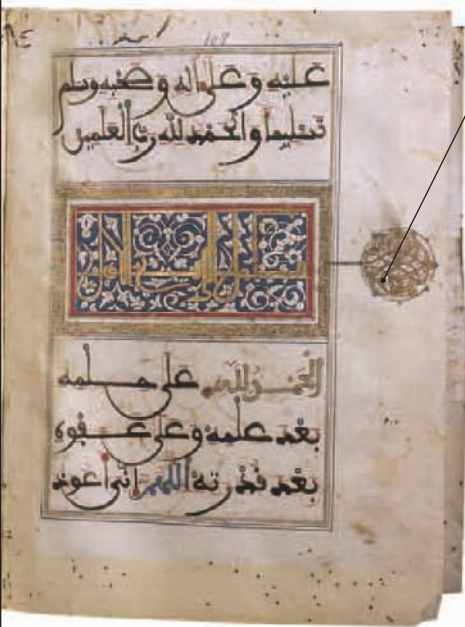 عليه وعلى اله وصحبه وسلم
تسليما والحمد لله رب العلمين
الحمد لله على حلمه
بعد علمه وعلى عفوه
بعد قدرته اللهم اني اعوذ